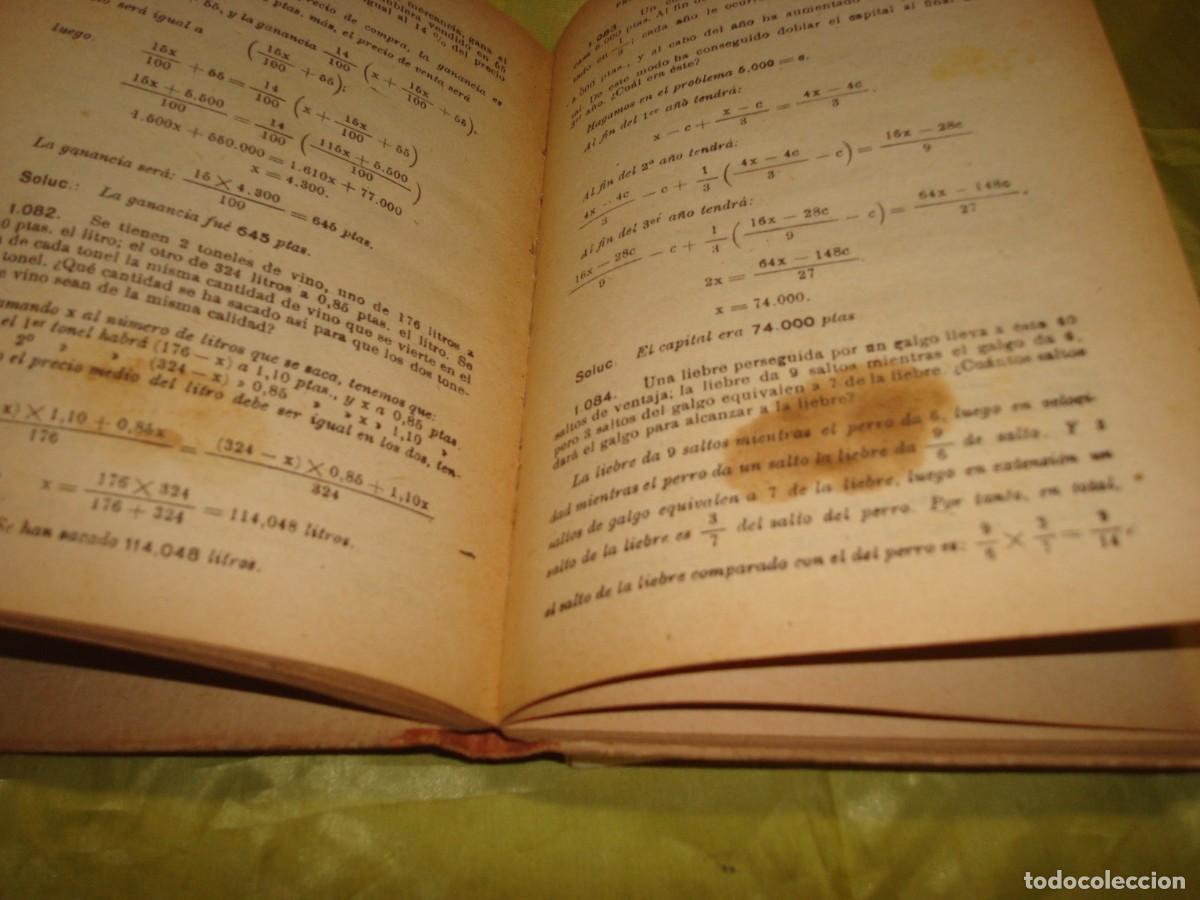 mercancía, gana el
vendido en 55
igual al 14 % del precio
precio de compra, la ganancia es
55, y la ganancia 14/100 (x + 15x/100 + 55).
ptas. más, el precio de venta será
será igual a (15x/100 + 55);
luego,
15x/100 + 55 = 14/100 (x + 15x/100 + 55)
(15x + 5.500)/100 = 14/100 ((115x + 5.500)/100)
1.500x + 550.000 = 1.610x + 77.000
x = 4.300.
La ganancia será: (15 × 4.300)/100 = 645 ptas.
Soluc.: La ganancia fué 645 ptas.
1.082. Se tienen 2 toneles de vino, uno de 176 litros a
ptas. el litro; el otro de 324 litros a 0,85 ptas. el litro. Se
de cada tonel la misma cantidad de vino que se vierte en el
tonel. ¿Qué cantidad se ha sacado así para que los dos tone-
vino sean de la misma calidad?
x al número de litros que se saca, tenemos que:
el 1er tonel habrá (176 — x) a 1,10 ptas., y x a 0,85 ptas.
2º » » (324 — x) » 0,85 » » x » 1,10 »
el precio medio del litro debe ser igual en los dos, ten-
x) × 1,10 + 0,85x / 176 = ((324 — x) × 0,85 + 1,10x) / 324
x = (176 × 324)/(176 + 324) = 114,048 litros.
Se han sacado 114,048 litros.
1.083. Un
ptas. Al fin de
1/3; cada año le
ptas., y al cabo del año ha aumentado
De este modo ha conseguido doblar el capital al final
año. ¿Cuál era éste?
Hagamos en el problema 5.000 = c.
Al fin del 1er año tendrá:
x — c + (x — c)/3 = (4x — 4c)/3.
Al fin del 2º año tendrá:
(4x — 4c)/3 — c + 1/3 ((4x — 4c)/3 — c) = (16x — 28c)/9
Al fin del 3er año tendrá:
(16x — 28c)/9 — c + 1/3 ((16x — 28c)/9 — c) = (64x — 148c)/27.
2x = (64x — 148c)/27.
x = 74.000.
Soluc. El capital era 74.000 ptas
1.084. Una liebre perseguida por un galgo lleva a éste 40
saltos de ventaja; la liebre da 9 saltos mientras el galgo da 6,
pero 3 saltos del galgo equivalen a 7 de la liebre. ¿Cuántos saltos
dará el galgo para alcanzar a la liebre?
La liebre da 9 saltos mientras el perro da 6, luego en veloci-
dad mientras el perro da un salto la liebre da 9/6 de salto. Y 3
saltos de galgo equivalen a 7 de la liebre, luego en extensión un
salto de la liebre es 3/7 del salto del perro. Por tanto, en total,
el salto de la liebre comparado con el del perro es: 9/6 × 3/7 = 9/14.
todocoleccion